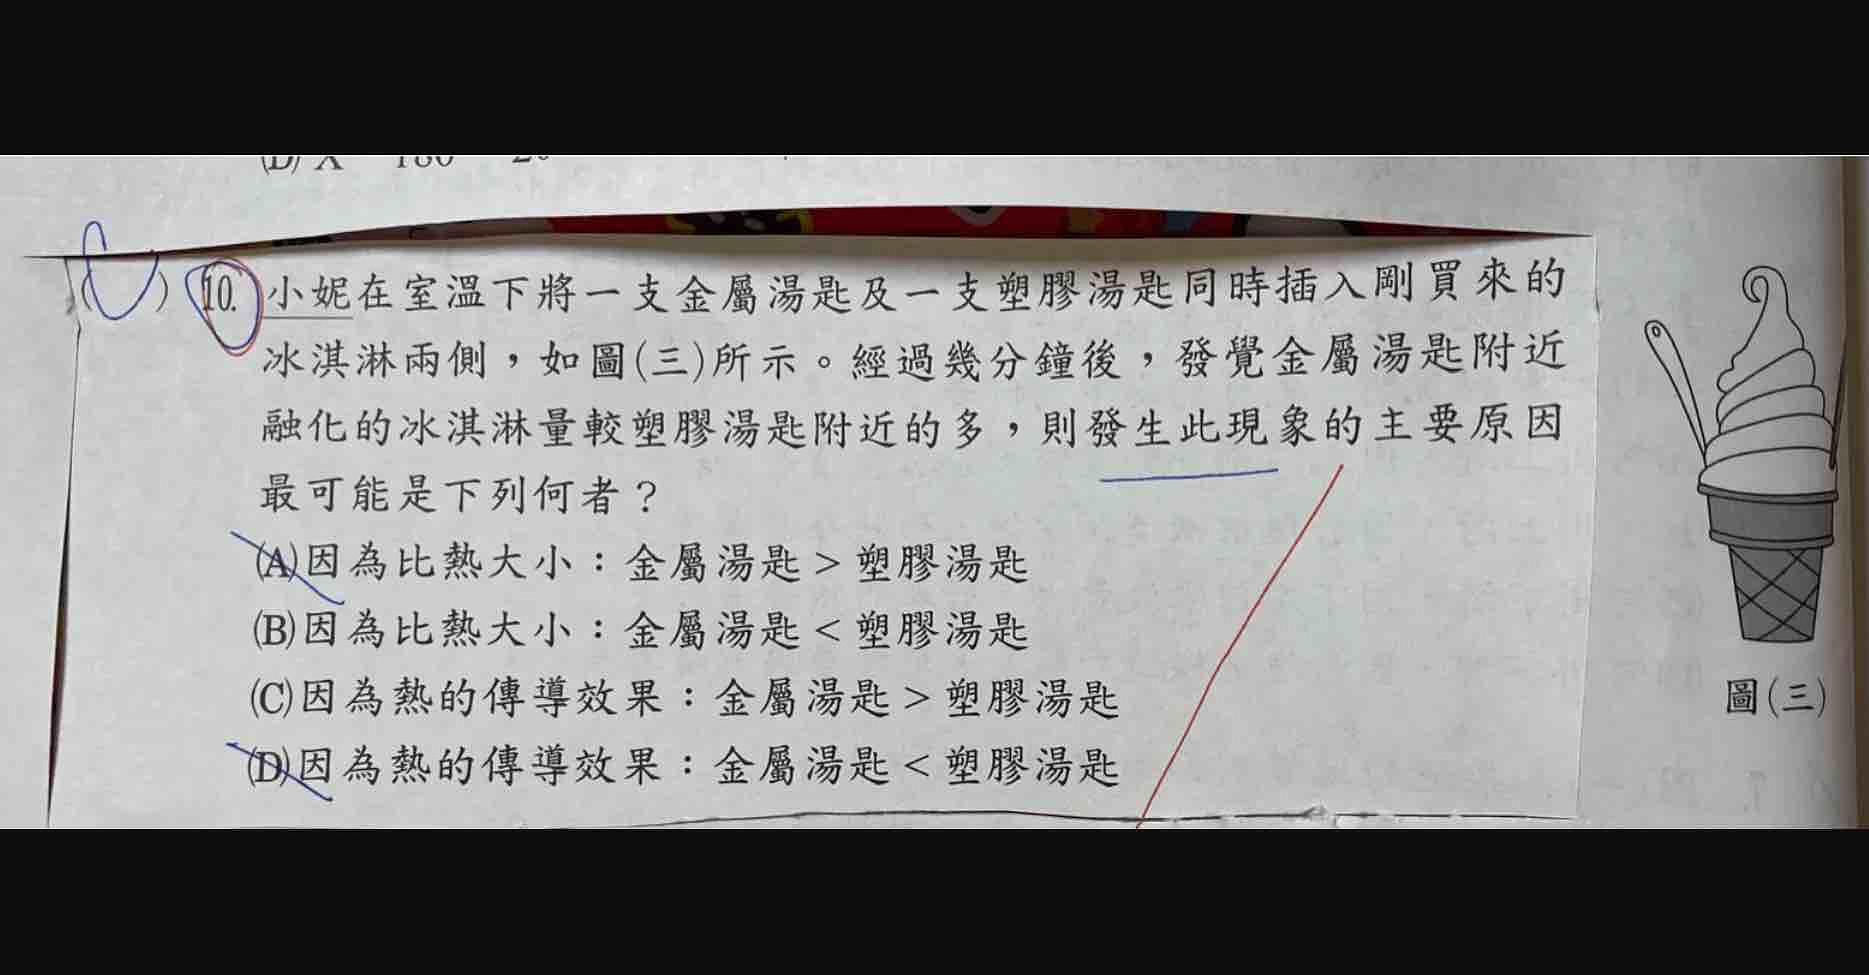 (D) X
) 10. 小妮在室溫下將一支金屬湯匙及一支塑膠湯匙同時插入剛買來的
冰淇淋兩側，如圖(三)所示。經過幾分鐘後，發覺金屬湯匙附近
融化的冰淇淋量較塑膠湯匙附近的多，則發生此現象的主要原因
最可能是下列何者？
(A)因為比熱大小：金屬湯匙 > 塑膠湯匙
(B)因為比熱大小：金屬湯匙 < 塑膠湯匙
(C)因為熱的傳導效果：金屬湯匙 > 塑膠湯匙
(D)因為熱的傳導效果：金屬湯匙 < 塑膠湯匙
圖(三)